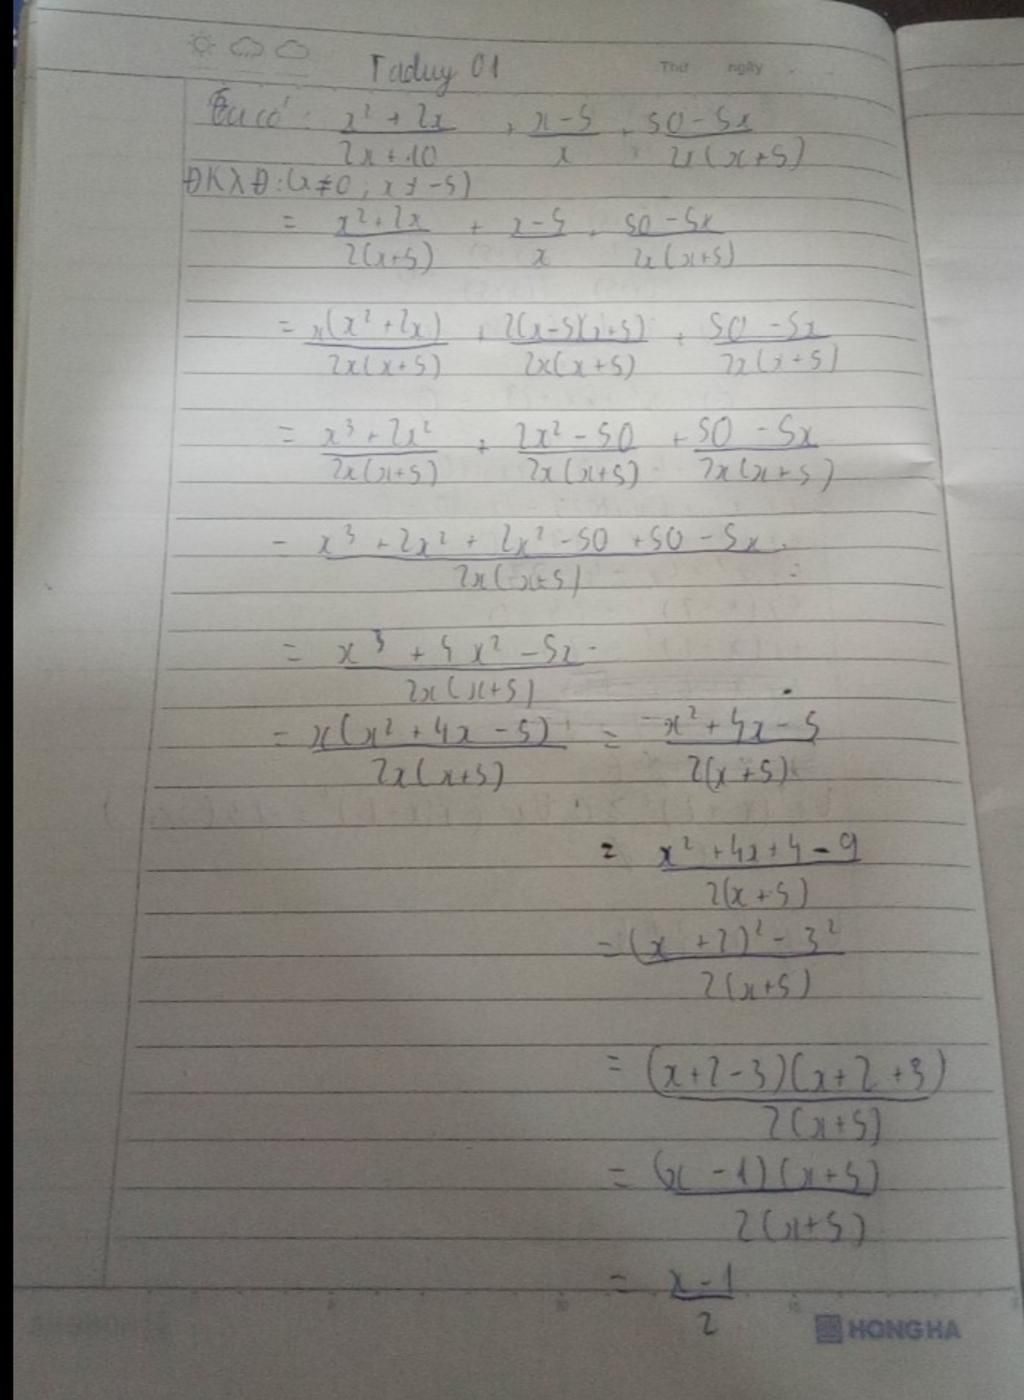 Taduy 01
Thứ ngày
Ta có: (x² + 2x)/(2x + 10) + (x - 5)/x + (50 - 5x)/(2x(x + 5))
ĐKXĐ: (x ≠ 0; x ≠ -5)
= (x² + 2x)/(2(x+5)) + (x - 5)/x + (50 - 5x)/(2x(x+5))
= (x(x² + 2x))/(2x(x+5)) + (2(x-5)(x+5))/(2x(x+5)) + (50 - 5x)/(2x(x+5))
= (x³ + 2x²)/(2x(x+5)) + (2x² - 50)/(2x(x+5)) + (50 - 5x)/(2x(x+5))
= (x³ + 2x² + 2x² - 50 + 50 - 5x)/(2x(x+5))
= (x³ + 4x² - 5x)/(2x(x+5))
= (x(x² + 4x - 5))/(2x(x+5)) = (x² + 4x - 5)/(2(x+5))
= (x² + 4x + 4 - 9)/(2(x+5))
= ((x + 2)² - 3²)/(2(x+5))
= ((x+2-3)(x+2+3))/(2(x+5))
= ((x - 1)(x+5))/(2(x+5))
= (x-1)/2
HONG HA